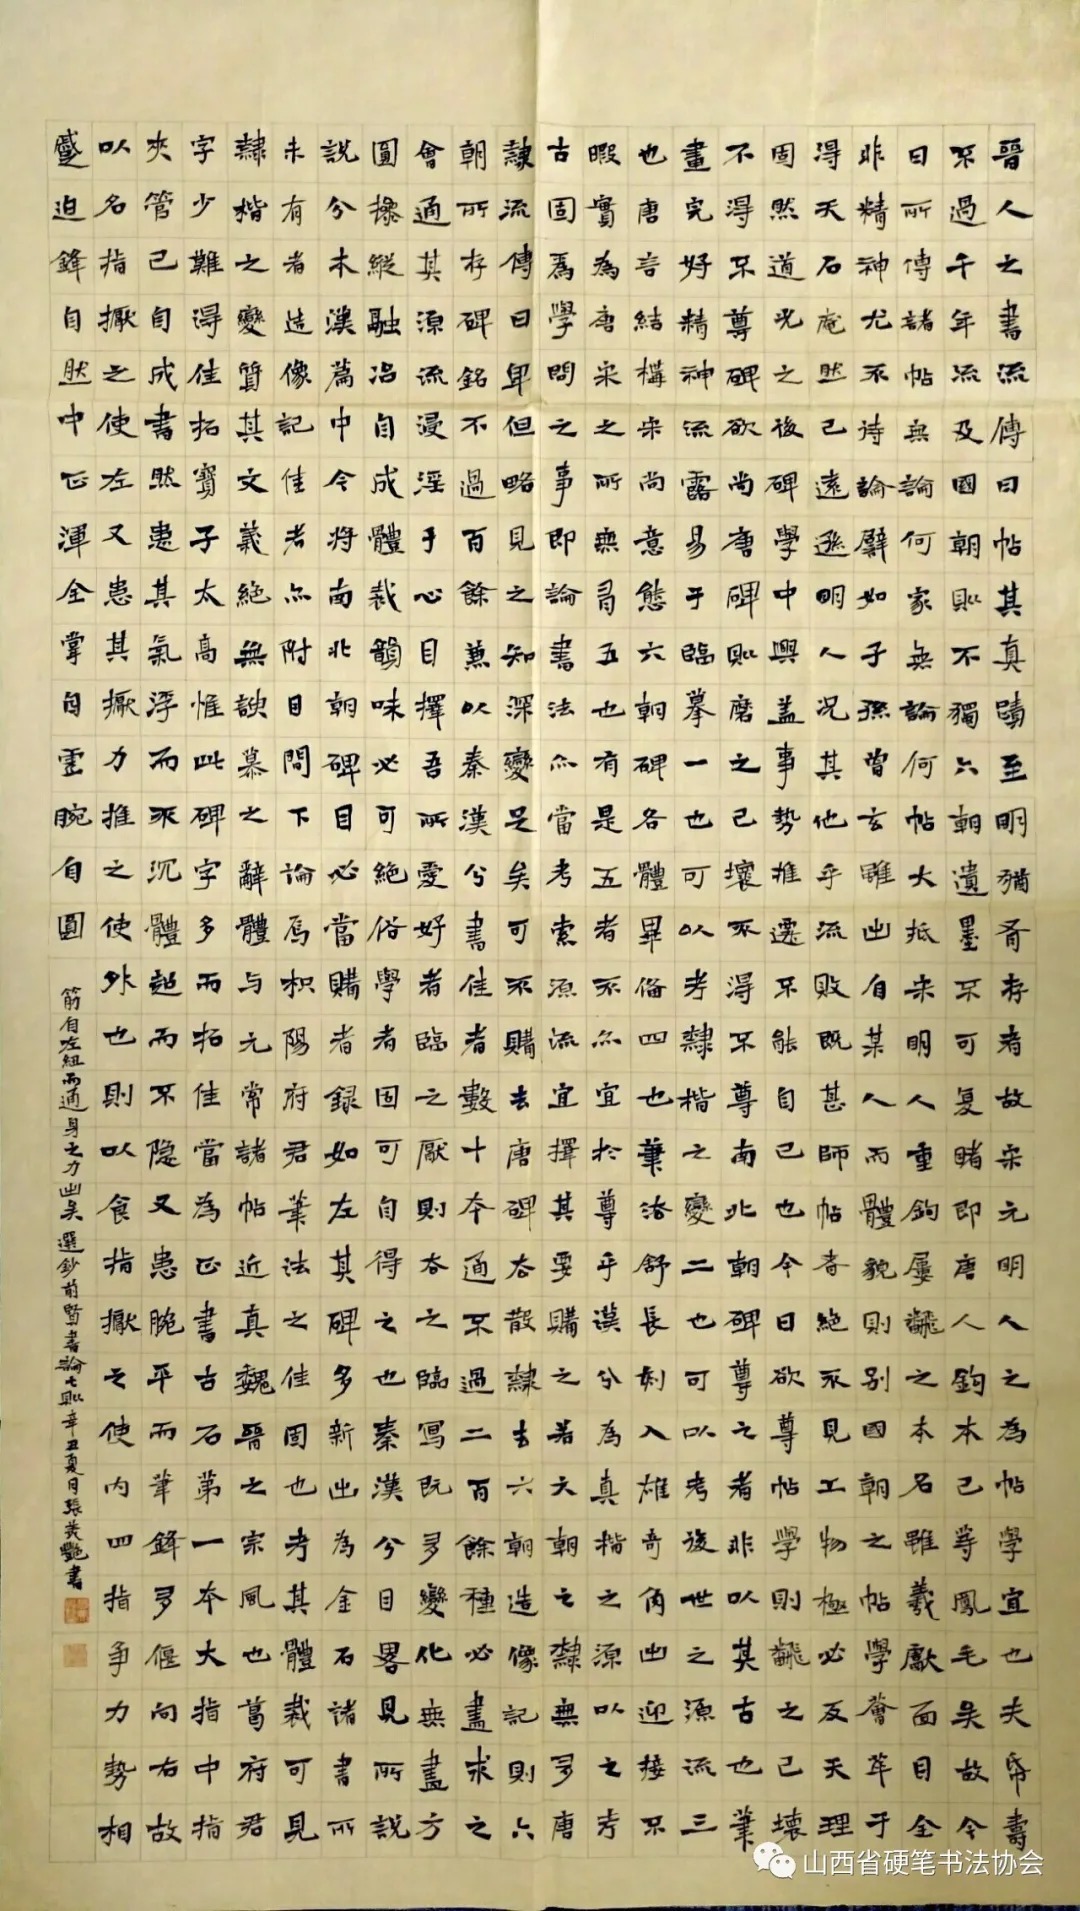 晉人之書流傳曰帖其真蹟至明猶有存者故宋元明人之為帖學宜也夫帋壽
不過千年流及國朝則不獨六朝遺墨不可复睹即唐人鉤本已等鳳毛矣故今
日所傳諸帖無論何家無論何帖大抵宋明人重鉤屢翻之本名雖羲獻面目全
非精神尤不待論譬如子孫曾玄雖出自某人而體貌則别國朝之帖學薈萃于
得天石庵然已遠遜明人况其他乎流敗既甚師帖者絕不見工物極必反天理
固然道光之後碑學中興蓋事勢推遷不能自已也今日欲尊帖學則翻之已壞
不得不尊碑欲尚唐碑則磨之已壞不得不尊南北朝碑尊之者非以其古也筆
畫完好精神流露易于臨摹一也可以考隸楷之變二也可以考後世之源流三
也唐言結構宋尚意態六朝碑各體畢俻四也筆法舒長刻入雄奇角出迎接不
暇實為唐宋之所無有五也有是五者不亦宜於尊乎漢分為真楷之源以之考
古固為學問之事即論書法亦當考索源流宜擇其要購之若天朝之隸無多唐
隸流傳曰卑但略見之知深變足矣可不購去唐碑去散隸去六朝造像記則六
朝所存碑銘不過百餘兼以秦漢分書佳者數十本通不過二百餘種必盡求之
會通其源流浸淫于心目擇吾所愛好者臨之厭則去之臨寫既多變化無盡方
圓操縱融冶自成體裁韻味必可絕俗學者固可自得之也秦漢分目畧見所說
說分本漢篇中今將南北朝碑目必當購者録如左其碑多新出為金石諸書所
未有者造像記佳者亦附目間下論焉枳陽府君筆法之佳固也考其體裁可見
隸楷之變質其文義絕無諛慕之辭體与元常諸帖近真魏晉之宗風也葛府君
字少難得佳拓寶子太高惟此碑字多而拓佳當為正書古石第一本大指中指
夾管已自成書然患其氣浮而不沉體超而不隐又患腕平而筆鋒多偃向右故
以名指擫之使左又患其擫力推之使外也則以食指擫之使内四指争力勢相
蹙迫鋒自然中正渾全掌自虛腕自圓
筋自左紐而通身之力出矣 選鈔前賢書論七則 辛丑夏月張英艷書
山西省硬笔书法协会